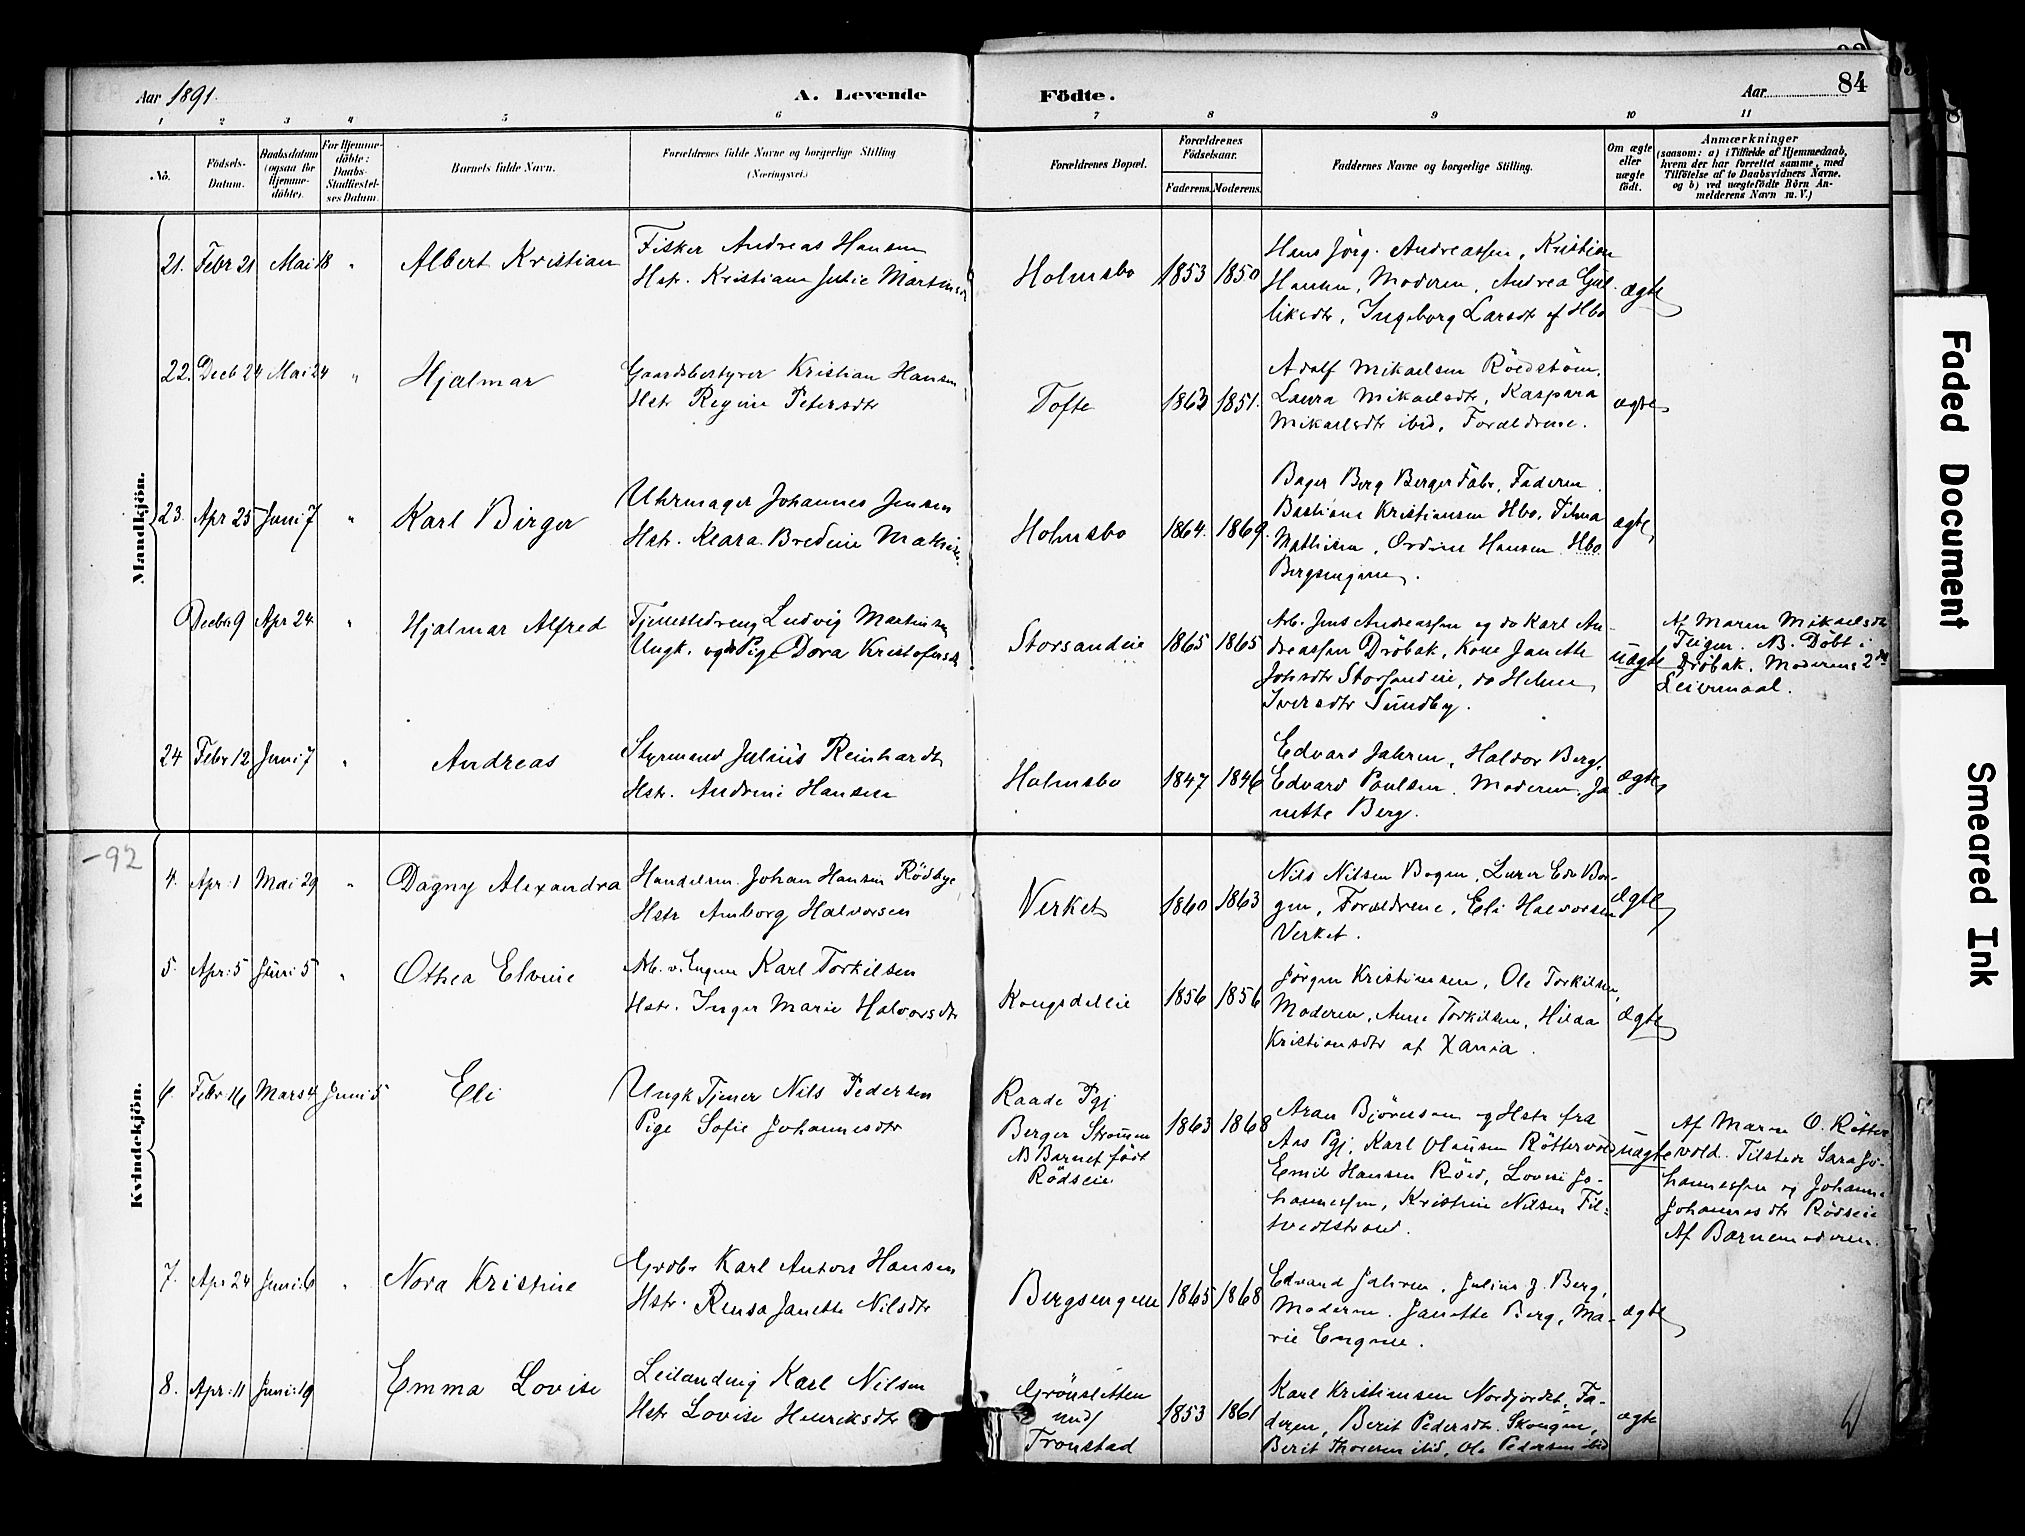 Aar 1891.
A. Levende
Födte.
Aar
84
1 2 3 4 5 6 7 8 9 10 11
No.
Födsels-Datum.
Daabsdatum (ogsaa for Hjemmedöbte).
For Hjemmedöbte: Daabs-Stadfæstelses Datum.
Barnets fulde Navn.
Forældrenes fulde Navne og borgerlige Stilling (Næringsvei.)
Forældrenes Bopæl.
Forældrenes Födselsaar.
Faderens. Moderens.
Faddernes Navne og borgerlige Stilling.
Om ægte eller uægte födt.
Anmærkninger
(saasom: a) i Tilfælde af Hjemmedaab,
hvem der har forrettet samme, med
Tilföielse af to Daabsvidners Navne.
og b) ved uægtefödte Börn Anmelderens Navn m. V.)
Mandkjön.
21. Febr 21 Mai 18 " Albert Kristian
Fisker Andreas Hansen
Hstr. Kristiane Julie Martinsdt
Holmsbo 1853 1850
Hans Jörg. Andreassen, Kristian
Hansen, Moderen, Andrea Gul-
liksdtr, Ingeborg Larsdt af Hbo
ægte
22. Decb 24 Mai 24 " Hjalmar
Gaardsbestyrer Kristian Hansen
Hstr Regine Petersdtr
Tofte 1863 1851.
Adolf Mikaelsen Röedstöm,
Laura Mikaelsdtr, Kaspara
Mikaelsdtr ibid, Forældrene.
ægte
23. Apr 25 Juni 7 " Karl Birger
Uhrmager Johannes Jensen
Hstr. Klara Bredine
Holmsbo 1864. 1869.
Bager Berg Berger Fabr, Faderen
Bastiane Kristiansen Hbo, Tilma
Mathisen, Ordine Hansen Hbo
Bergsengene.
ægte
Decbr 9 Apr 24 " Hjalmar Alfred
Tjenestedreng Ludvig Martinsen
Ungk. og Pige Dora Kristofersdt
Storsandeie 1865 1865
Arb. Jens Andreassen og do Karl An-
dreassen Dröbak, Kone Janette
Johsdtr Storsandeie, do Helene
Iversdtr Sundby.
uægte
Af Maren Mikaelsdtr
Teigen. NB. Döbt i
Dröbak. Moderens 2det
Leiermaal.
24 Febr 12 Juni 7 " Andreas
Styrmand Julius Reinhardt
Hstr. Andrine Hansen
Holmsbo 1847 1846
Edvard Jahren, Haldor Berg,
Edvard Poulsen, Moderen, Ja-
nette Berg.
ægte
-92
Kvindekjön.
4. Apr: 1 Mai 29 " Dagny Alexandra
Handelsm. Johan Hansen Rödbye
Hstr Amborg Halvorsen
Verket 1860 1863
Nils Nilsen Bogen, Lærer Edv Bor-
gen, Forældrene, Eli Halvorsen
Verket.
ægte
5. Apr: 5 Juni 5 " Othea Elvine
Arb. v. Engene Karl Torkilsen
Hstr. Inger Marie Halvorsdtr
Kongsdeleie 1856 1856
Jörgen Kristiansen, Ole Torkilsen,
Moderen, Anne Torkilsen, Hilda
Kristiansdtr af Xania.
ægte
6. Febr 16 Mars 4 Juni 5 Eli
Ungk Tjener Nils Pedersen
Pige Sofie Johannesdtr
Raade Pgj
Berger Strömm
NB Barnet födt
Rödseie
1863 1868
Aran Björnsen og Hstr fra
Aas Pgj, Karl Olausen Röttervold
Emil Hansen Röed, Lovise Jo-
hannessen, Kristine Nilsen Fil-
tvedtstrand.
uægte
Af Maren O. Rötter-
vold. Tilstede Sara Jo-
hannessen og Johanne
Johannesdtr Rödseie
Af Barnemoderen.
7. Apr 24 Juni: 6 " Nora Kristine
Grdbr Karl Anton Hansen
Hstr. Rensa Janette Nilsdtr
Bergsengene 1865 1868
Edvard Jahren, Julius J. Berg,
Moderen. Janette Berg, Ma-
rie Engene.
ægte
8. Apr: 11 Juni: 19 Emma Lovise
Leilænding Karl Nilsen
Hstr Lovise Henriksdtr
Grönsletten
und/
Tronstad
1853 1861
Karl Kristiansen Nordjordet, Fa-
deren, Berit Pedersdtr Skougen,
Berit Thoresen ibid, Ole Pedersen ibid
ægte
Faded Document
Smeared Ink